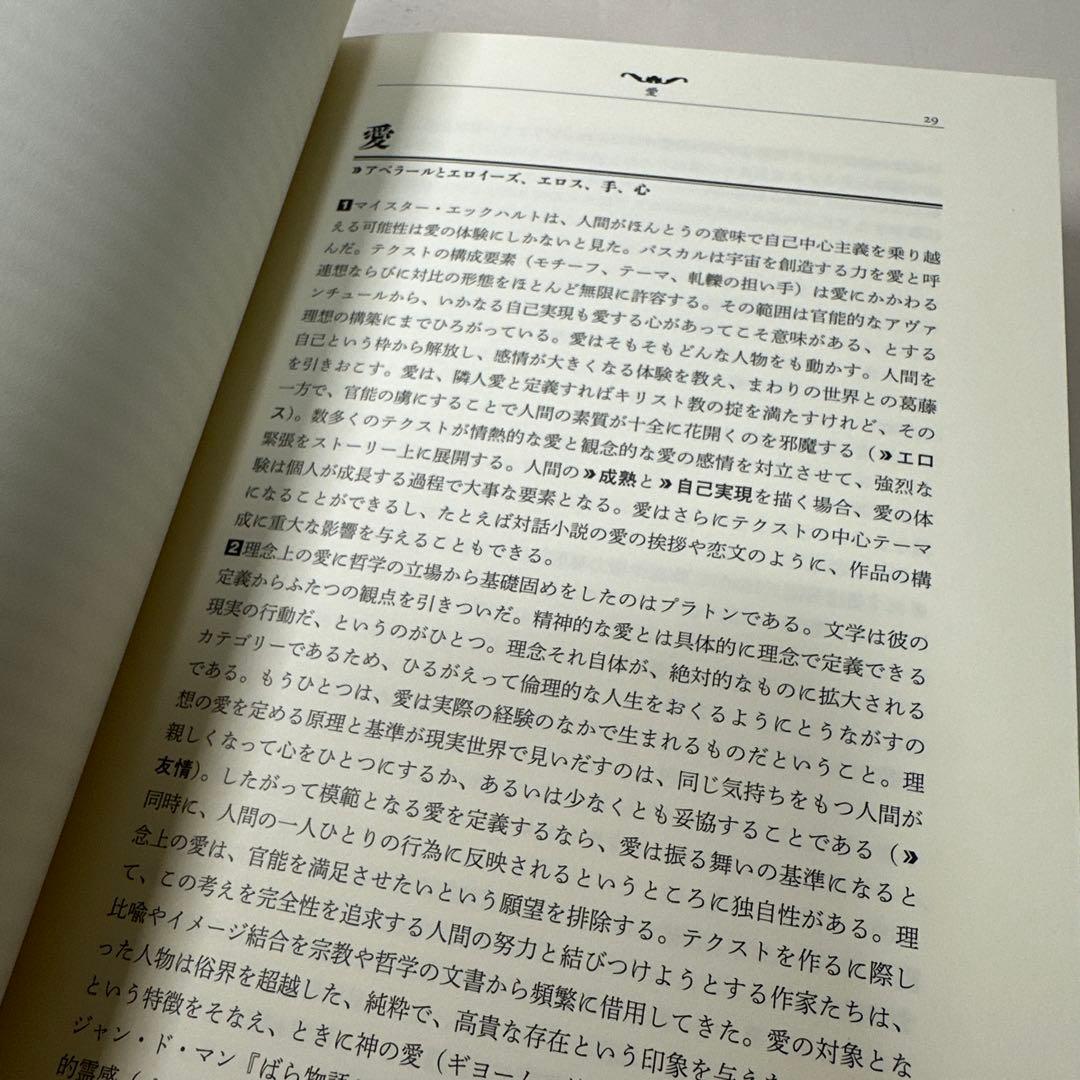 愛
29
愛
»アベラールとエロイーズ、エロス、手、心
1マイスター・エックハルトは、人間がほんとうの意味で自己中心主義を乗り越
える可能性は愛の体験にしかないと見た。パスカルは宇宙を創造する力を愛と呼
んだ。テクストの構成要素（モチーフ、テーマ、軋轢の担い手）は愛にかかわる
連想ならびに対比の形態をほとんど無限に許容する。その範囲は官能的なアヴァ
ンチュールから、いかなる自己実現も愛する心があってこそ意味がある、とする
理想の構築にまでひろがっている。愛はそもそもどんな人物をも動かす。人間を
自己という枠から解放し、感情が大きくなる体験を教え、まわりの世界との葛藤
を引きおこす。愛は、隣人愛と定義すればキリスト教の掟を満たすけれど、その
一方で、官能の虜にすることで人間の素質が十全に花開くのを邪魔する（»エロ
ス）。数多くのテクストが情熱的な愛と観念的な愛の感情を対立させて、強烈な
緊張をストーリー上に展開する。人間の»成熟と»自己実現を描く場合、愛の体
験は個人が成長する過程で大事な要素となる。愛はさらにテクストの中心テーマ
になることができるし、たとえば対話小説の愛の挨拶や恋文のように、作品の構
成に重大な影響を与えることもできる。
2理念上の愛に哲学の立場から基礎固めをしたのはプラトンである。文学は彼の
定義からふたつの観点を引きついだ。精神的な愛とは具体的に理念で定義できる
現実の行動だ、というのがひとつ。理念それ自体が、絶対的なものに拡大される
カテゴリーであるため、ひるがえって倫理的な人生をおくるようにとうながすの
である。もうひとつは、愛は実際の経験のなかで生まれるものだということ。理
想の愛を定める原理と基準が現実世界で見いだすのは、同じ気持ちをもつ人間が
親しくなって心をひとつにするか、あるいは少なくとも妥協することである（»
友情）。したがって模範となる愛を定義するなら、愛は振る舞いの基準になると
同時に、人間の一人ひとりの行為に反映されるというところに独自性がある。理
念上の愛は、官能を満足させたいという願望を排除する。テクストを作るに際し
て、この考えを完全性を追求する人間の努力と結びつけようとする作家たちは、
比喩やイメージ結合を宗教や哲学の文書から頻繁に借用してきた。愛の対象とな
った人物は俗界を超越した、純粋で、高貴な存在という印象を与え
という特徴をそなえ、ときに神の愛（ギヨーム
ジャン・ド・マン『ばら物語
的霊感（